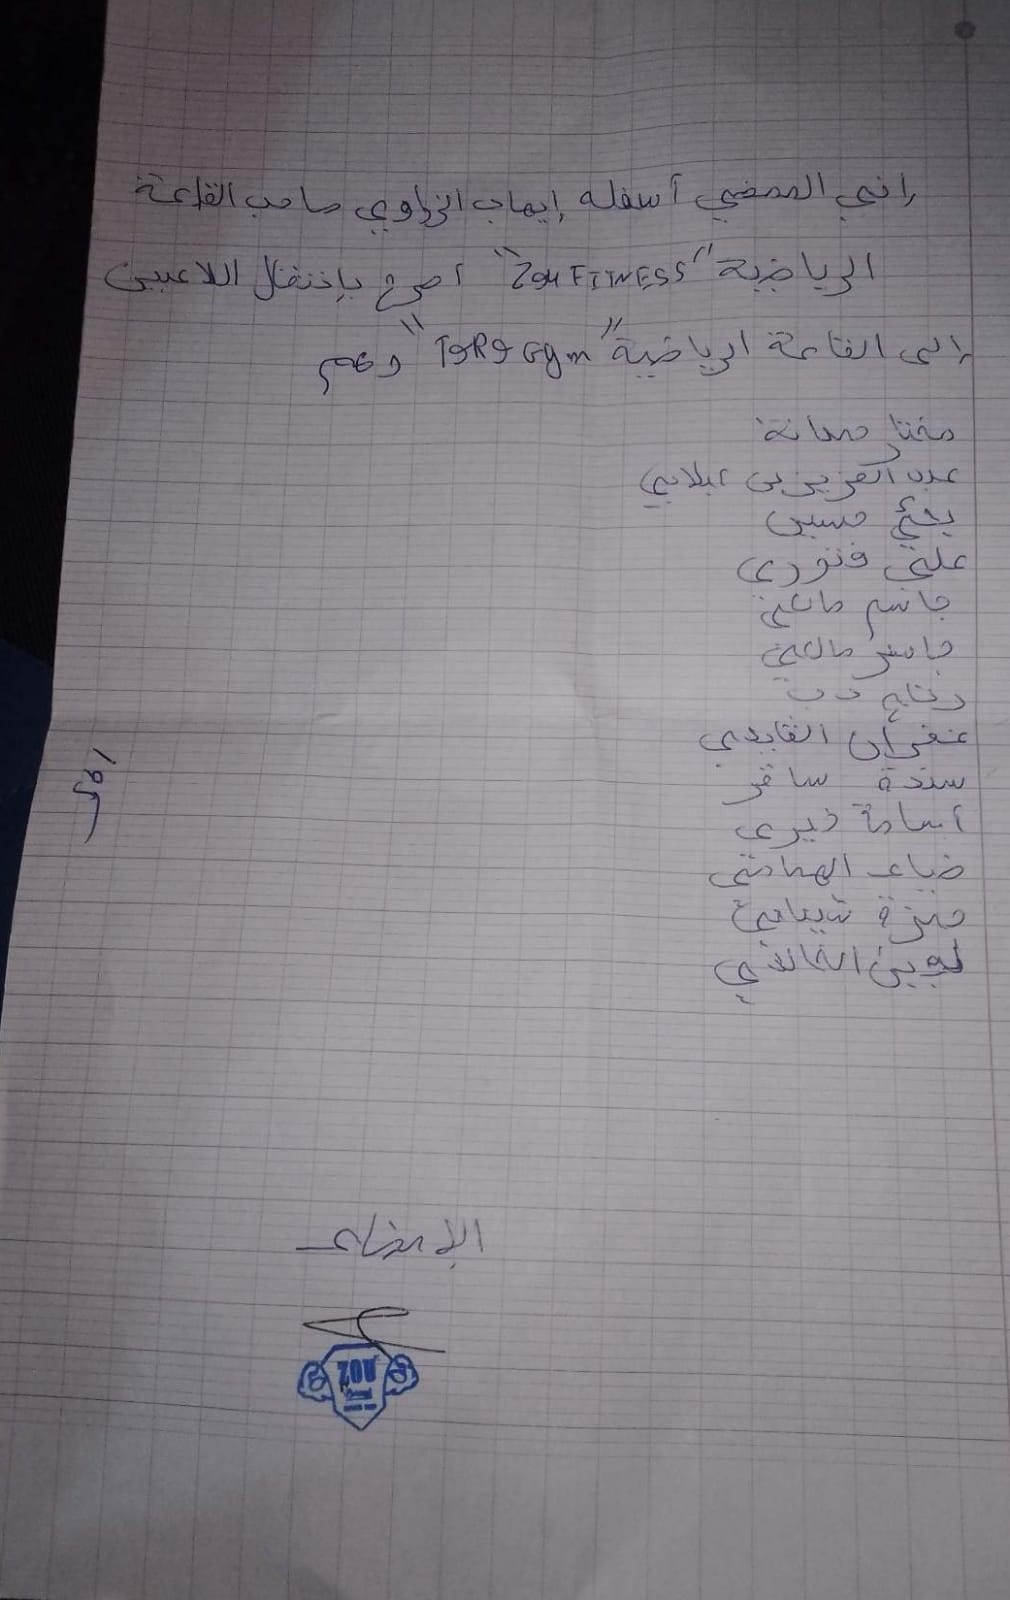 إني الممضي أسفله إيهاب الزواوي صاحب القاعة
الرياضية "ZOU FITNESS" أصرح بإنتقال اللاعبين
إلى القاعة الرياضية "TORO Gym" وهم
مختار
عبد العزيز بن عبلاني
يحيى حسين
علي فنودي
جاسم مالكي
جاسر مالكي
رتاج دب
غفران القايدي
سندة ساقر
أسامة خيري
ضياء الهمامي
حمزة
لجين الخالفي
الإمضاء
ZOU